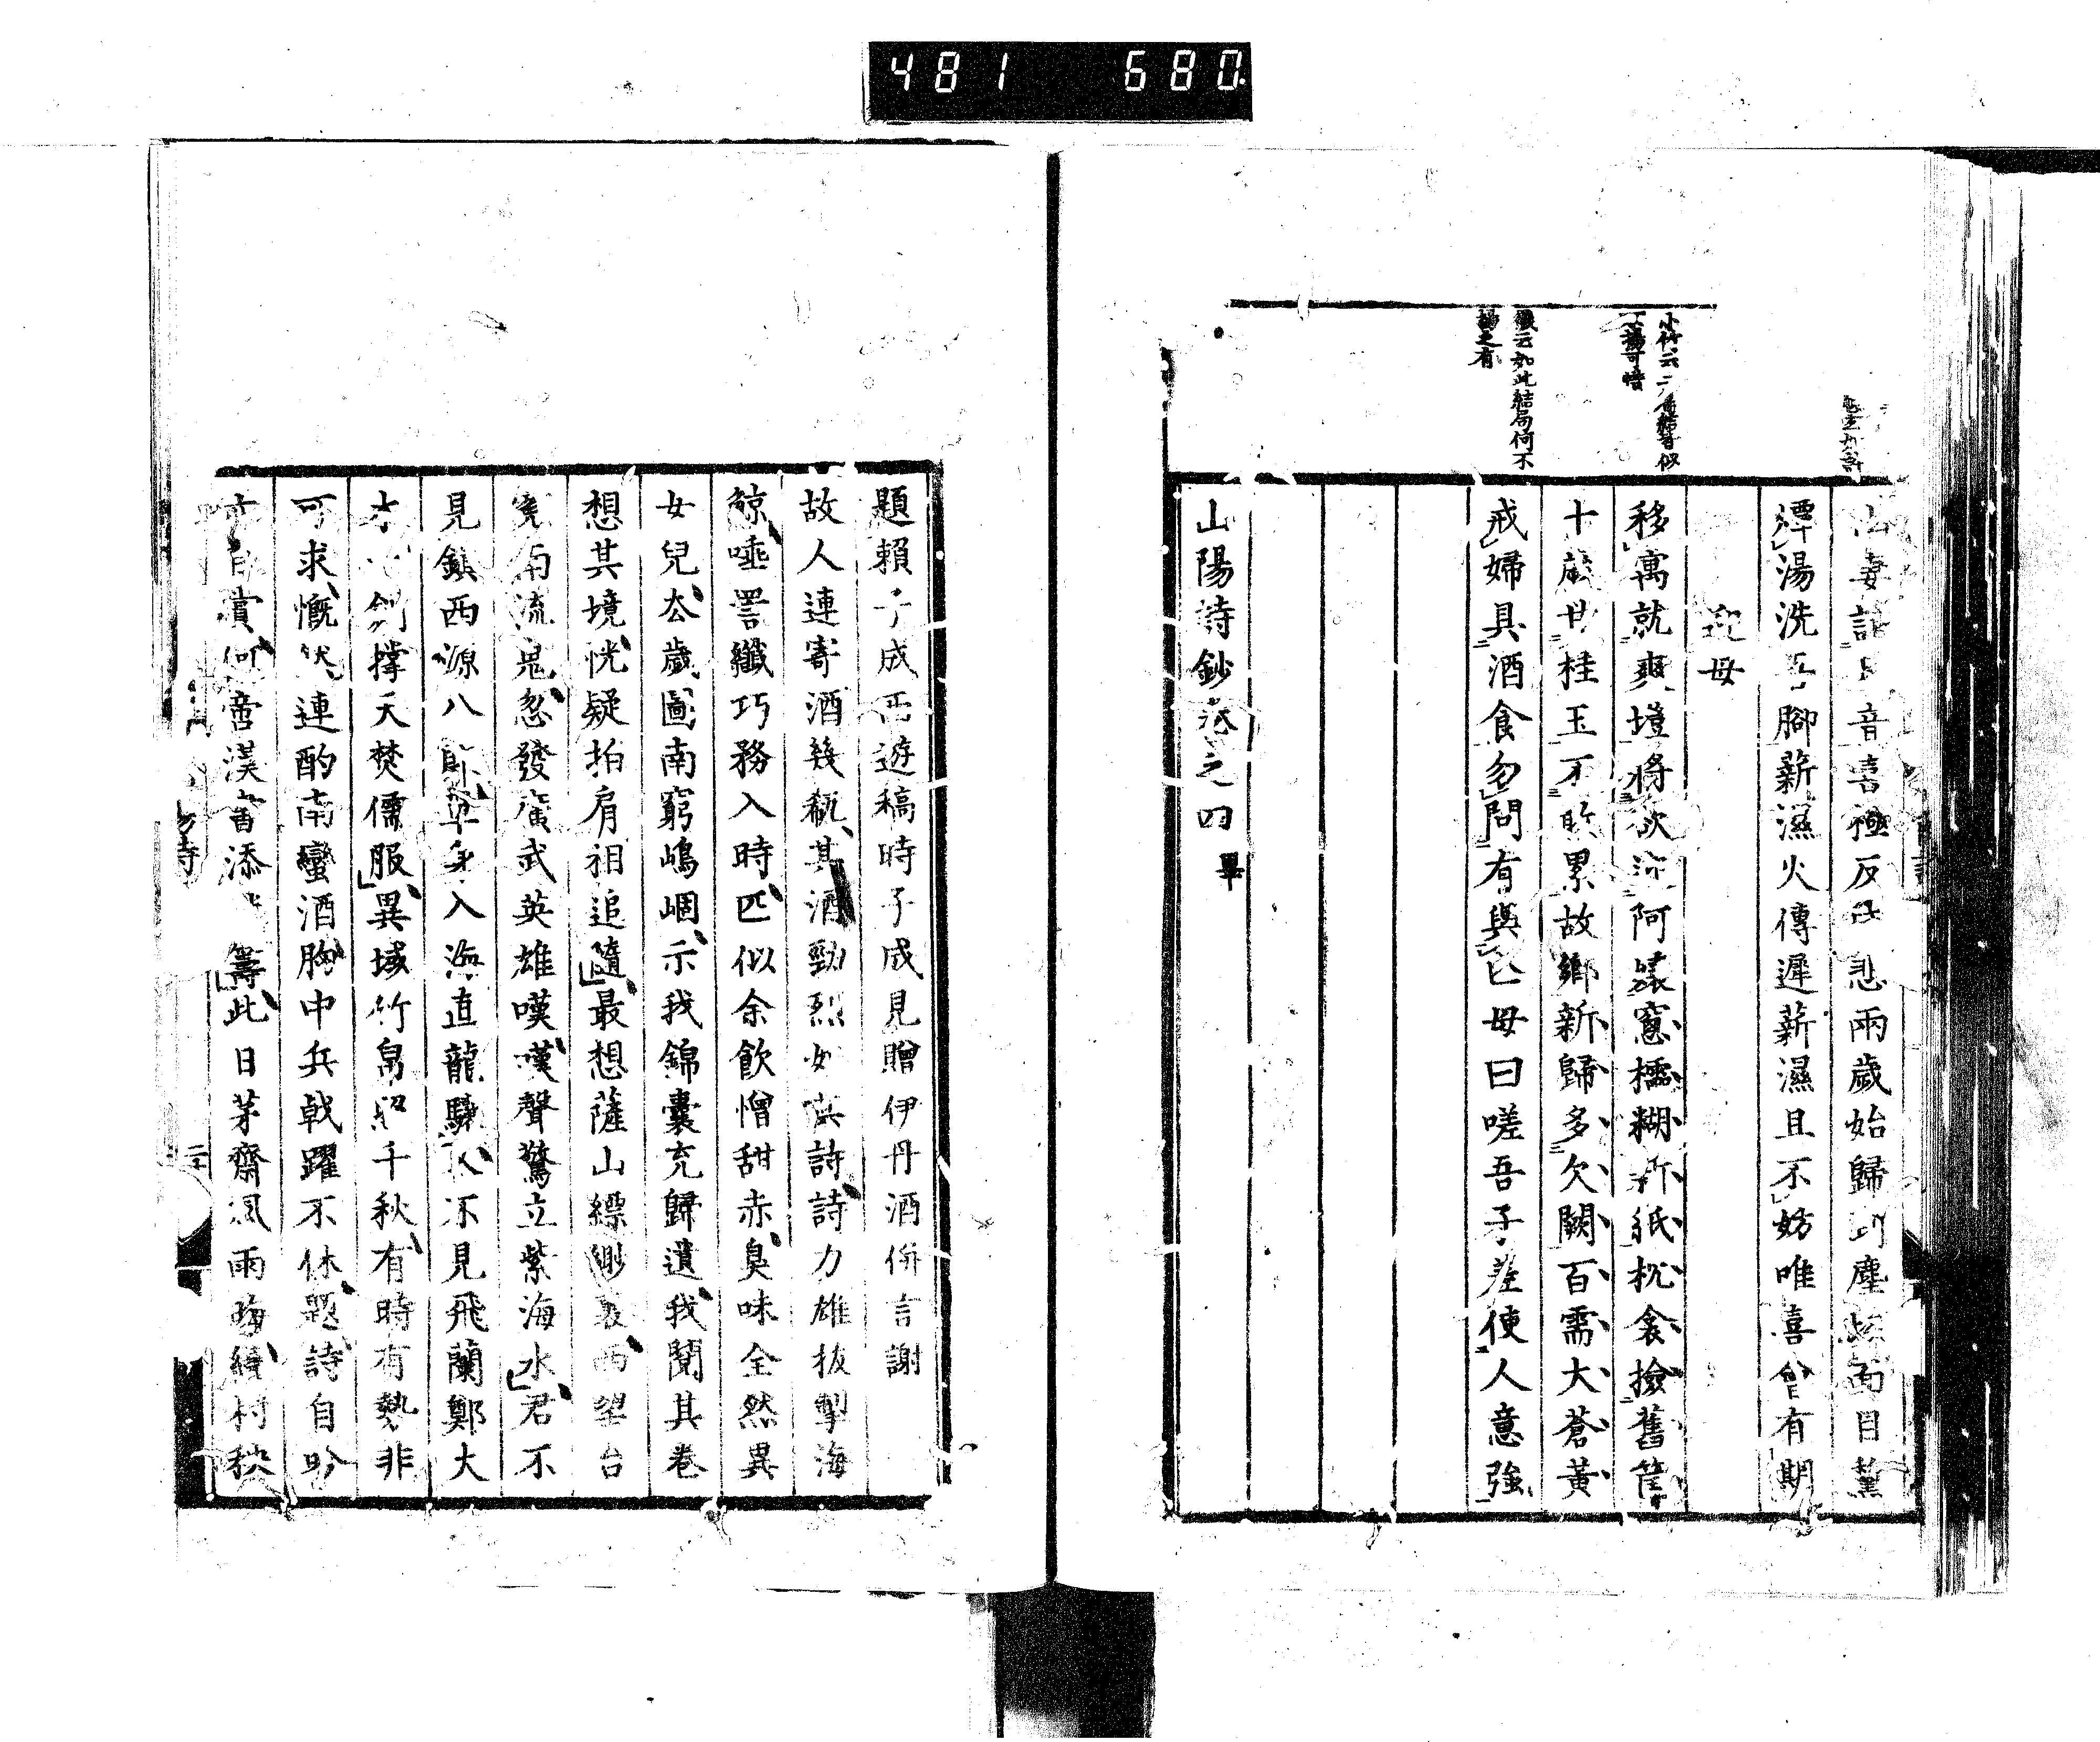 481 680
山妻訝 音喜極反 悲兩歲始歸 塵 面目黧
燂湯洗吾腳薪濕火傳遲薪濕且不妨唯喜曾有期
迎母
移寓就爽塏將欲迎阿孃窓櫺糊新紙枕衾撿舊筐
十歲甘桂玉不敢累故鄉新歸多欠闕百需大蒼黃
戒婦具酒食勿問有與亡母曰嗟吾子差使人意強
山陽詩鈔卷之四 畢
小竹云二 結皆似
可惜
云如此結局何不
之有
題賴子成西遊稿時子成見贈伊丹酒併言謝
故人連寄酒幾瓻其酒勁烈如其詩詩力雄拔掣海
鯨唾罵纖巧務入時匹似余飲憎甜赤臭味全然異
女兒去歲圖南窮嶋崓示我錦囊充歸遺我閱其卷
想其境恍疑拍肩相追隨最想薩山縹緲裏西望台
南流鬼忽發廣武英雄嘆嘆聲驚立紫海水君不
見鎮西源八郎單身入海直龍驤又不見飛蘭鄭大
木 劍撐天焚儒服異域竹帛照千秋有時有勢非
可求慨然連酌南蠻酒胸中兵戟躍不休題詩自吟
自賞何啻漢書添 籌此日茅齋風雨晦繞村秧